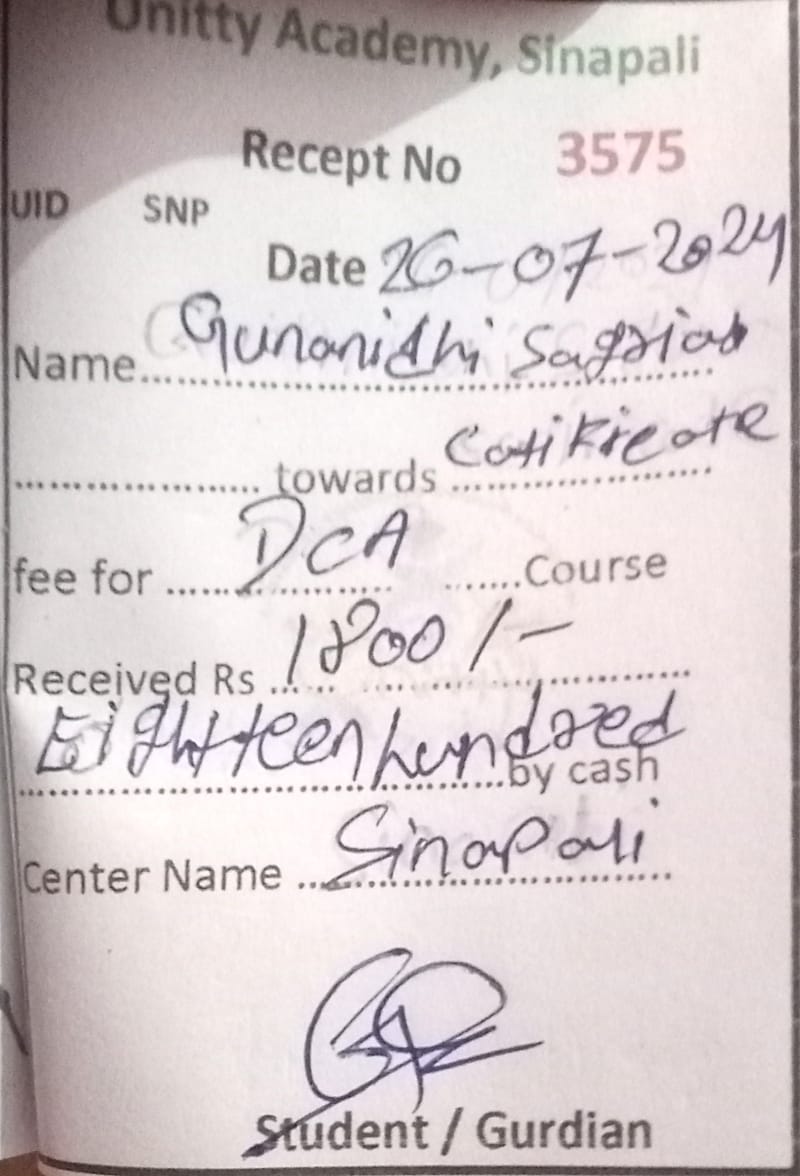 Unitty Academy, Sinapali
Recept No 3575
UID SNP
Date 26-07-2024
Name Gunanidhi
towards
fee for DCA Course
Received Rs 1800/-
Eighteen hundred by cash
Center Name Sinapali
Student / Gurdian